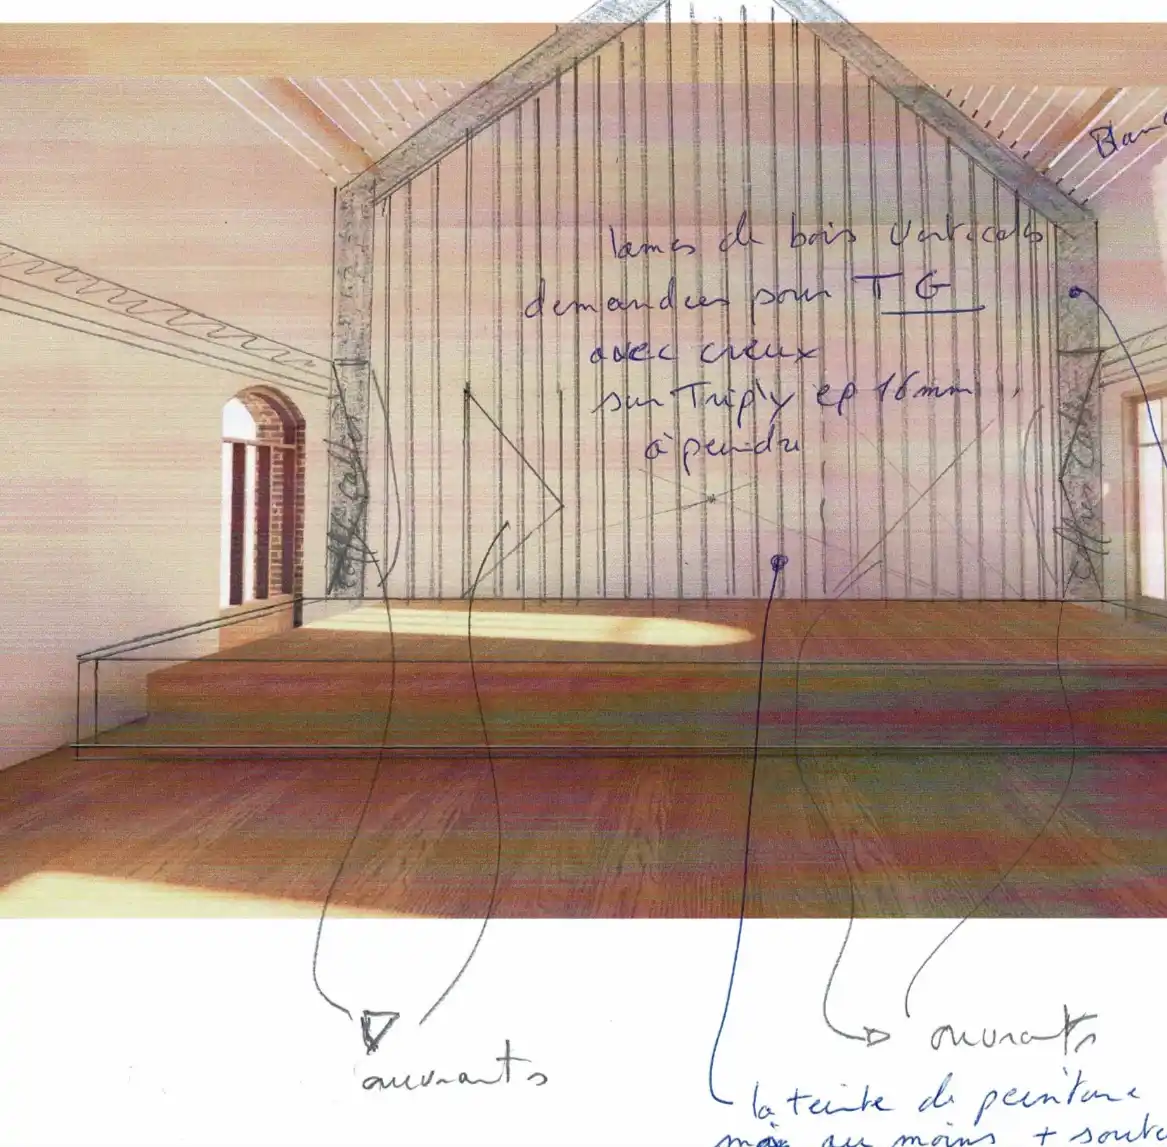 Blanc
lames de bois verticales
demandées pour T G
avec creux
sur Triply ep 16 mm
à peindre
coffre
coffre
ouvrants
ouvrants
la teinte de peinture
au moins +